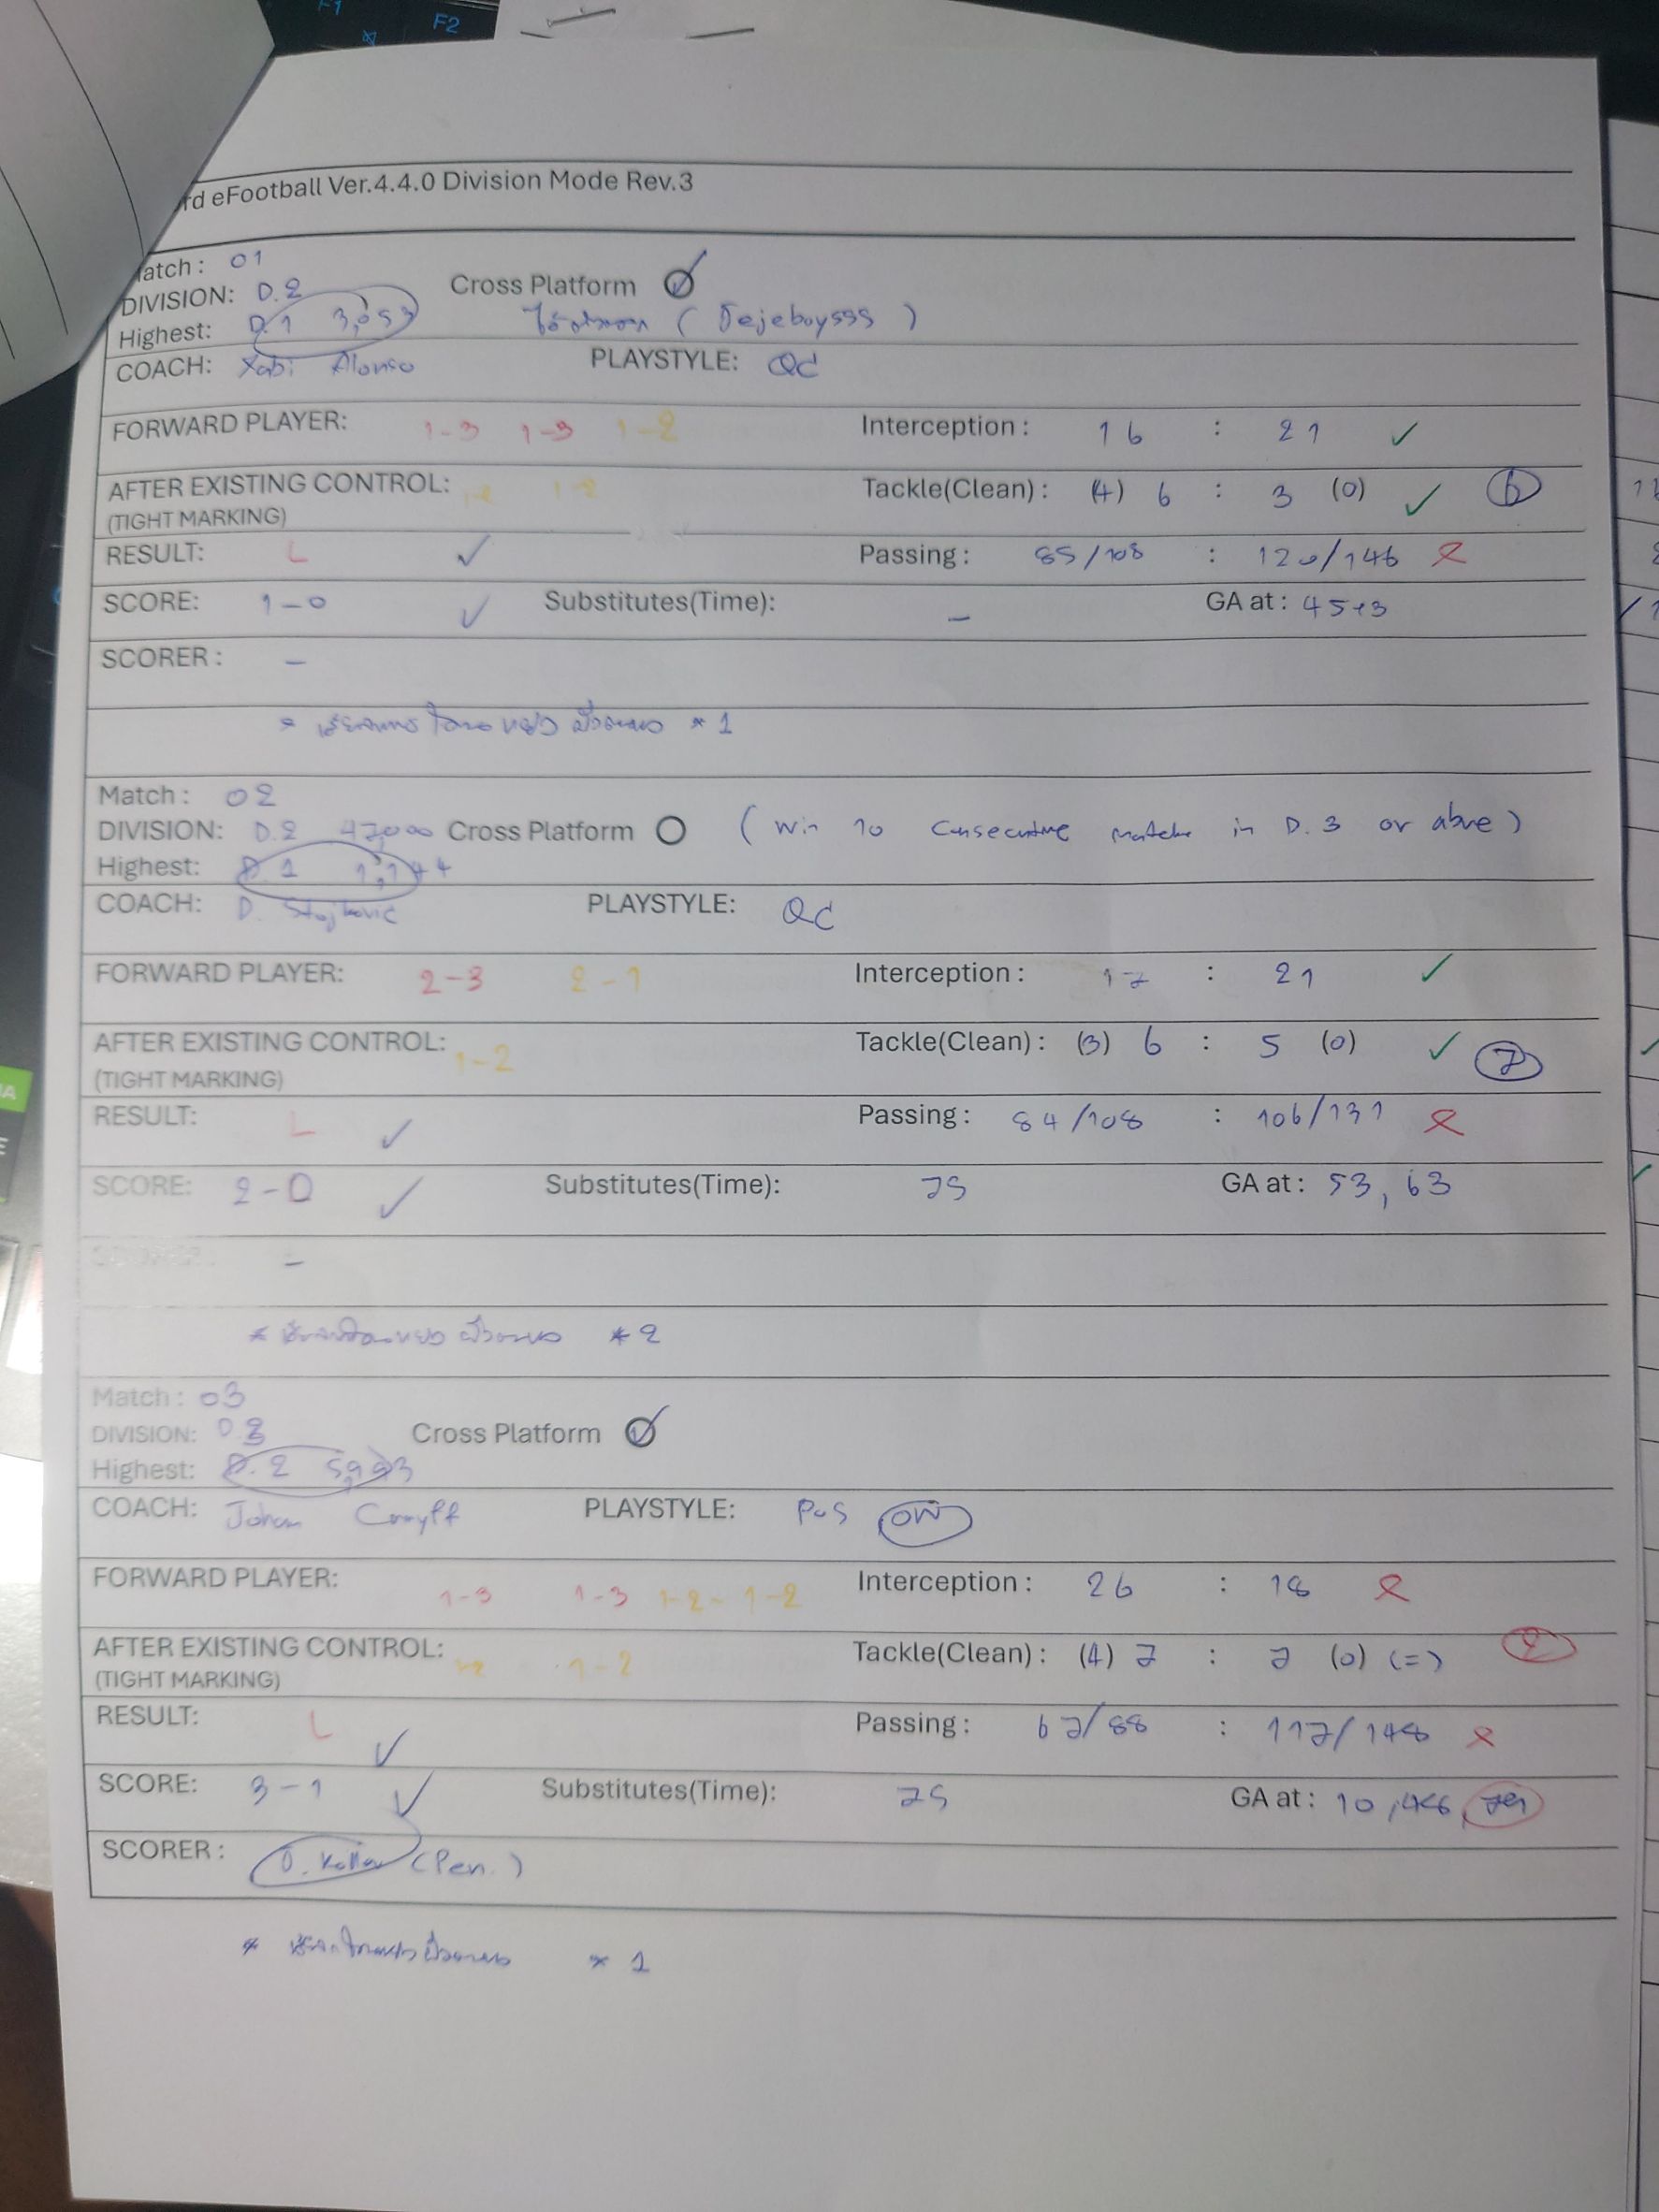 F1
F2
rd eFootball Ver.4.4.0 Division Mode Rev.3
atch : 01
DIVISION: D.2 Cross Platform
Highest: D.1 3,053 (Jejeboy555)
COACH: Xabi Alonso PLAYSTYLE: QC
FORWARD PLAYER: 1-3 1-3 1-2 Interception : 16 : 21 ✓
AFTER EXISTING CONTROL: 1-2 1-2 Tackle(Clean) : (4) 6 : 3 (0) ✓ 6
(TIGHT MARKING)
RESULT: L ✓ Passing : 85/108 : 120/146
SCORE: 1-0 ✓ Substitutes(Time): - GA at : 45+3
SCORER : -
* 1
Match : 02
DIVISION: D.2 Cross Platform (Win 10 Consecutive matches in D.3 or above)
Highest: D.1 1,144
COACH: D. Stojković PLAYSTYLE: QC
FORWARD PLAYER: 2-3 2-1 Interception : 17 : 21 ✓
AFTER EXISTING CONTROL: 1-2 Tackle(Clean) : (3) 6 : 5 (0) ✓ 7
(TIGHT MARKING)
RESULT: L ✓ Passing : 84/108 : 106/131
SCORE: 2-0 ✓ Substitutes(Time): 75 GA at : 53, 63
-
* 2
Match : 03
DIVISION: D.3 Cross Platform
Highest: D.2 5,993
COACH: Johan Cruyff PLAYSTYLE: Pos OW
FORWARD PLAYER: 1-3 1-3 1-2 - 1-2 Interception : 26 : 18
AFTER EXISTING CONTROL: 1-2 1-2 Tackle(Clean) : (4) 7 : 7 (0) (=)
(TIGHT MARKING)
RESULT: L ✓ Passing : 67/88 : 117/148
SCORE: 3-1 ✓ Substitutes(Time): 75 GA at : 10, 46, 79
SCORER : (Pen.)
* 1